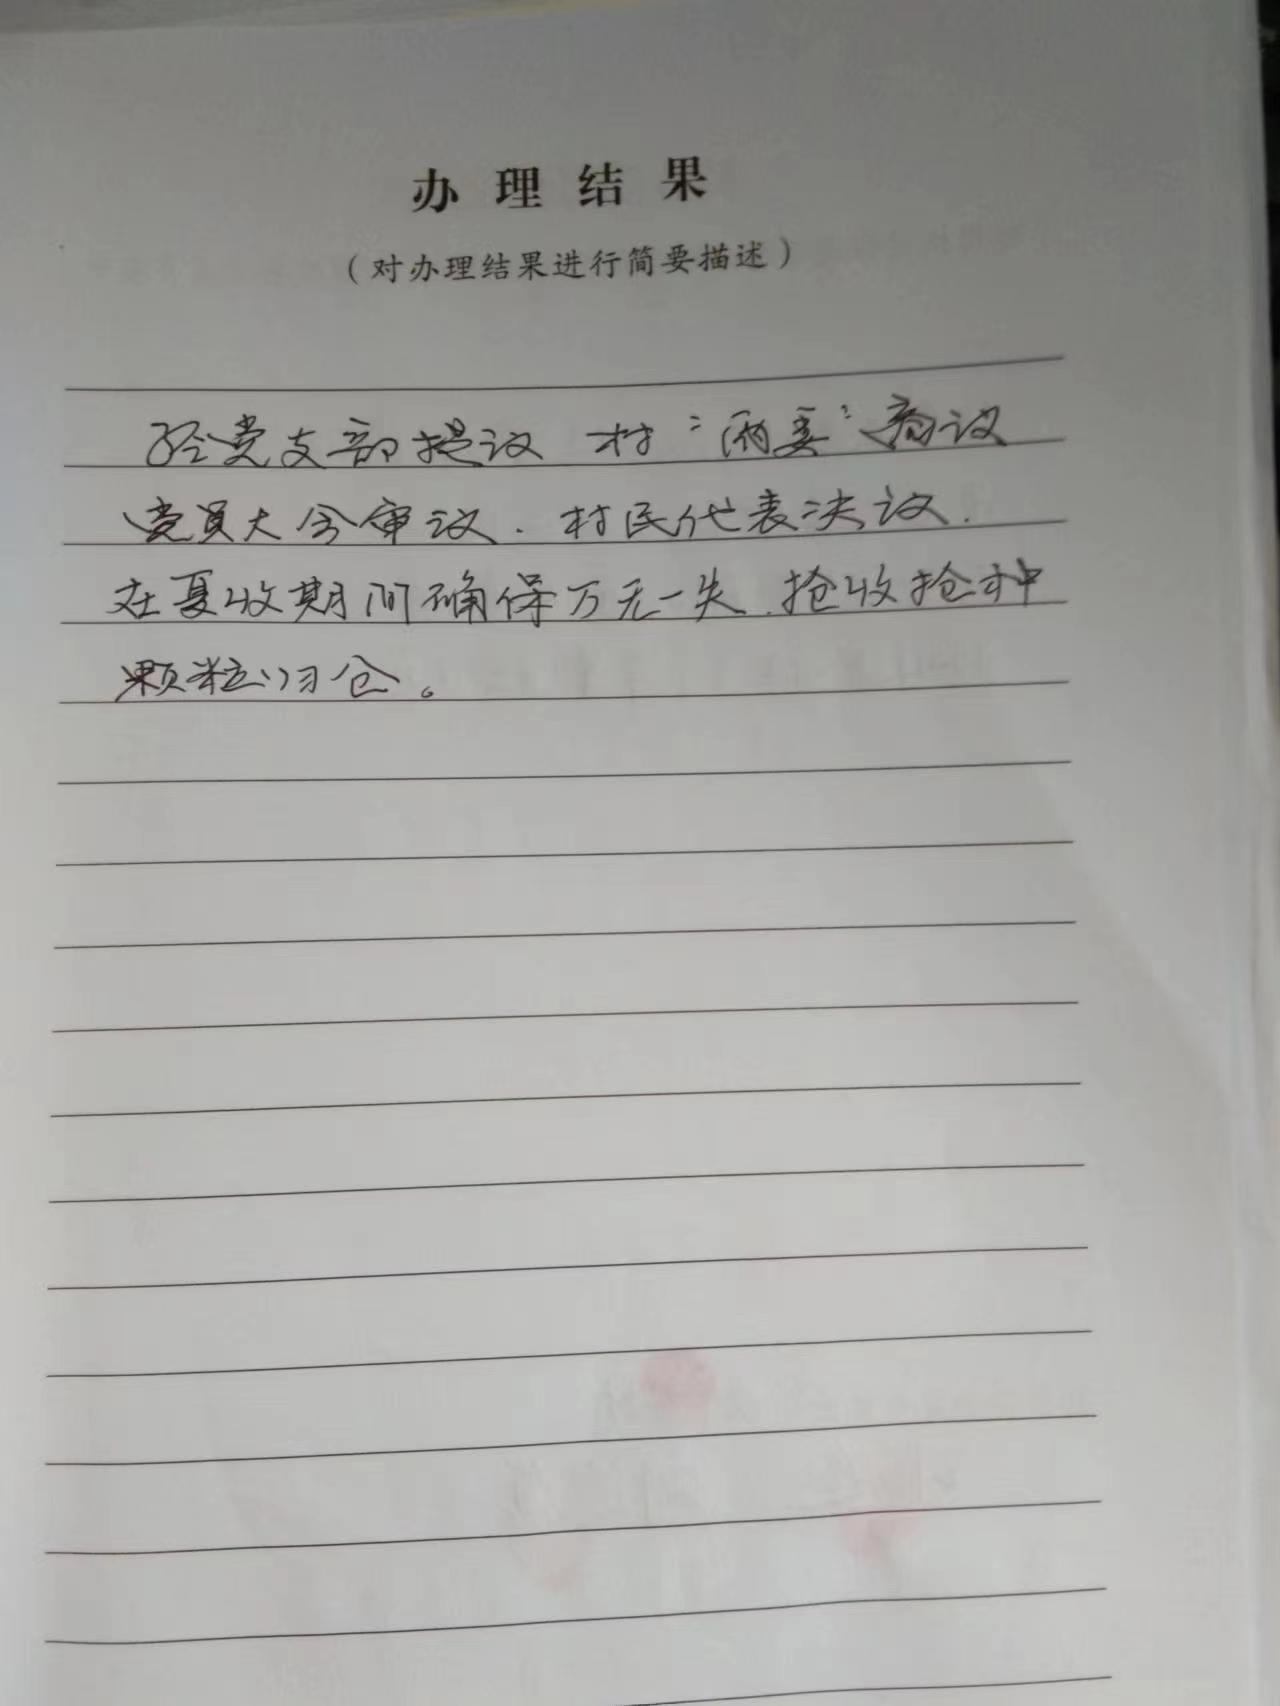 办理结果
（对办理结果进行简要描述）
经党支部提议 村“两委”商议
党员大会审议．村民代表决议．
在夏收期间确保万无一失．抢收抢种
颗粒归仓。